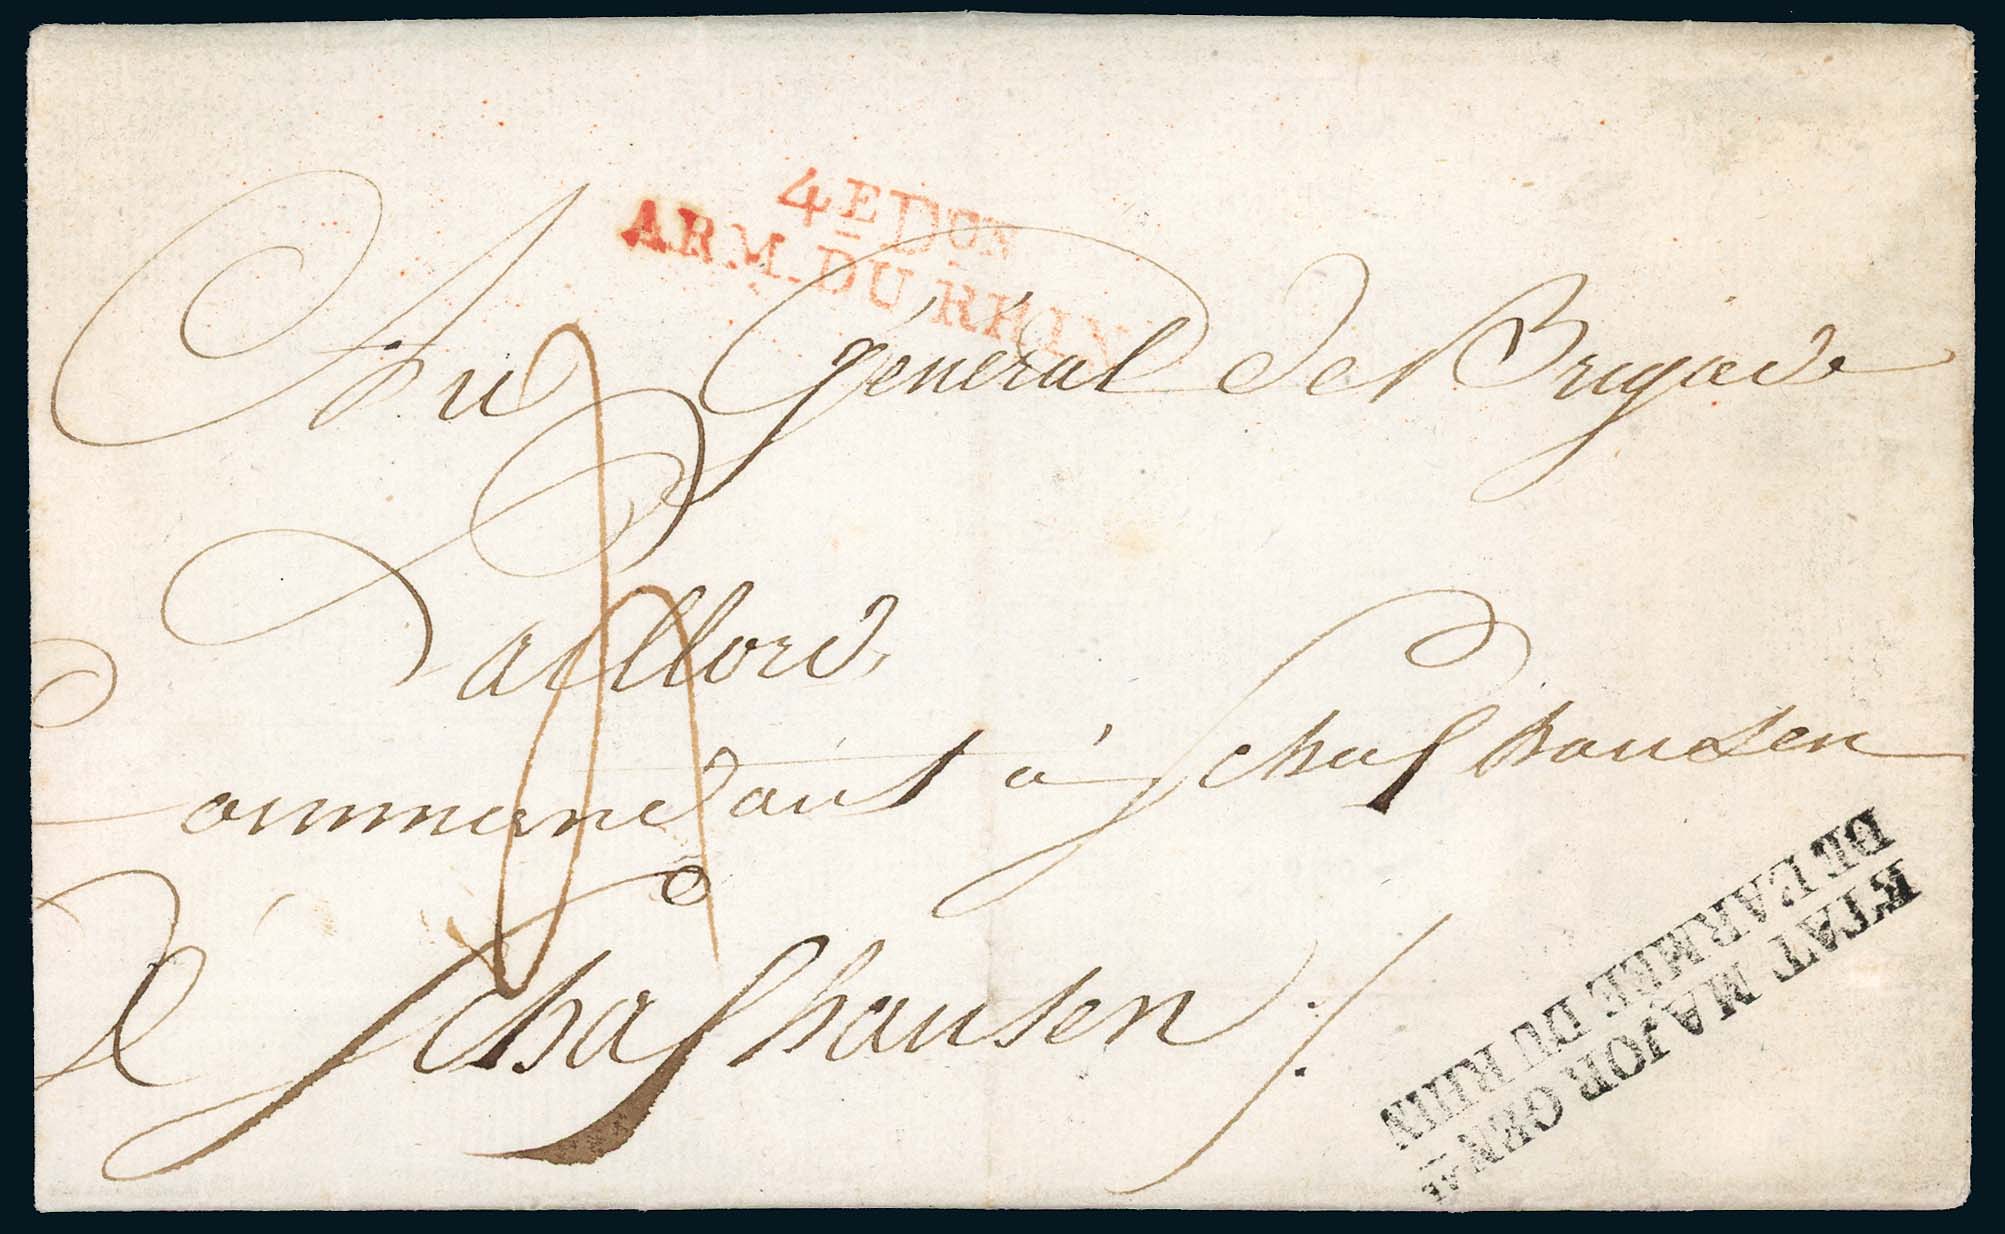 4E Don
ARM. DU RHIN
Au Général de Brigade
Paillord,
Commandant à Schafhausen
à Schafhausen ./.
ETAT MAJOR GENAL
DE L'ARMÉE DU RHIN